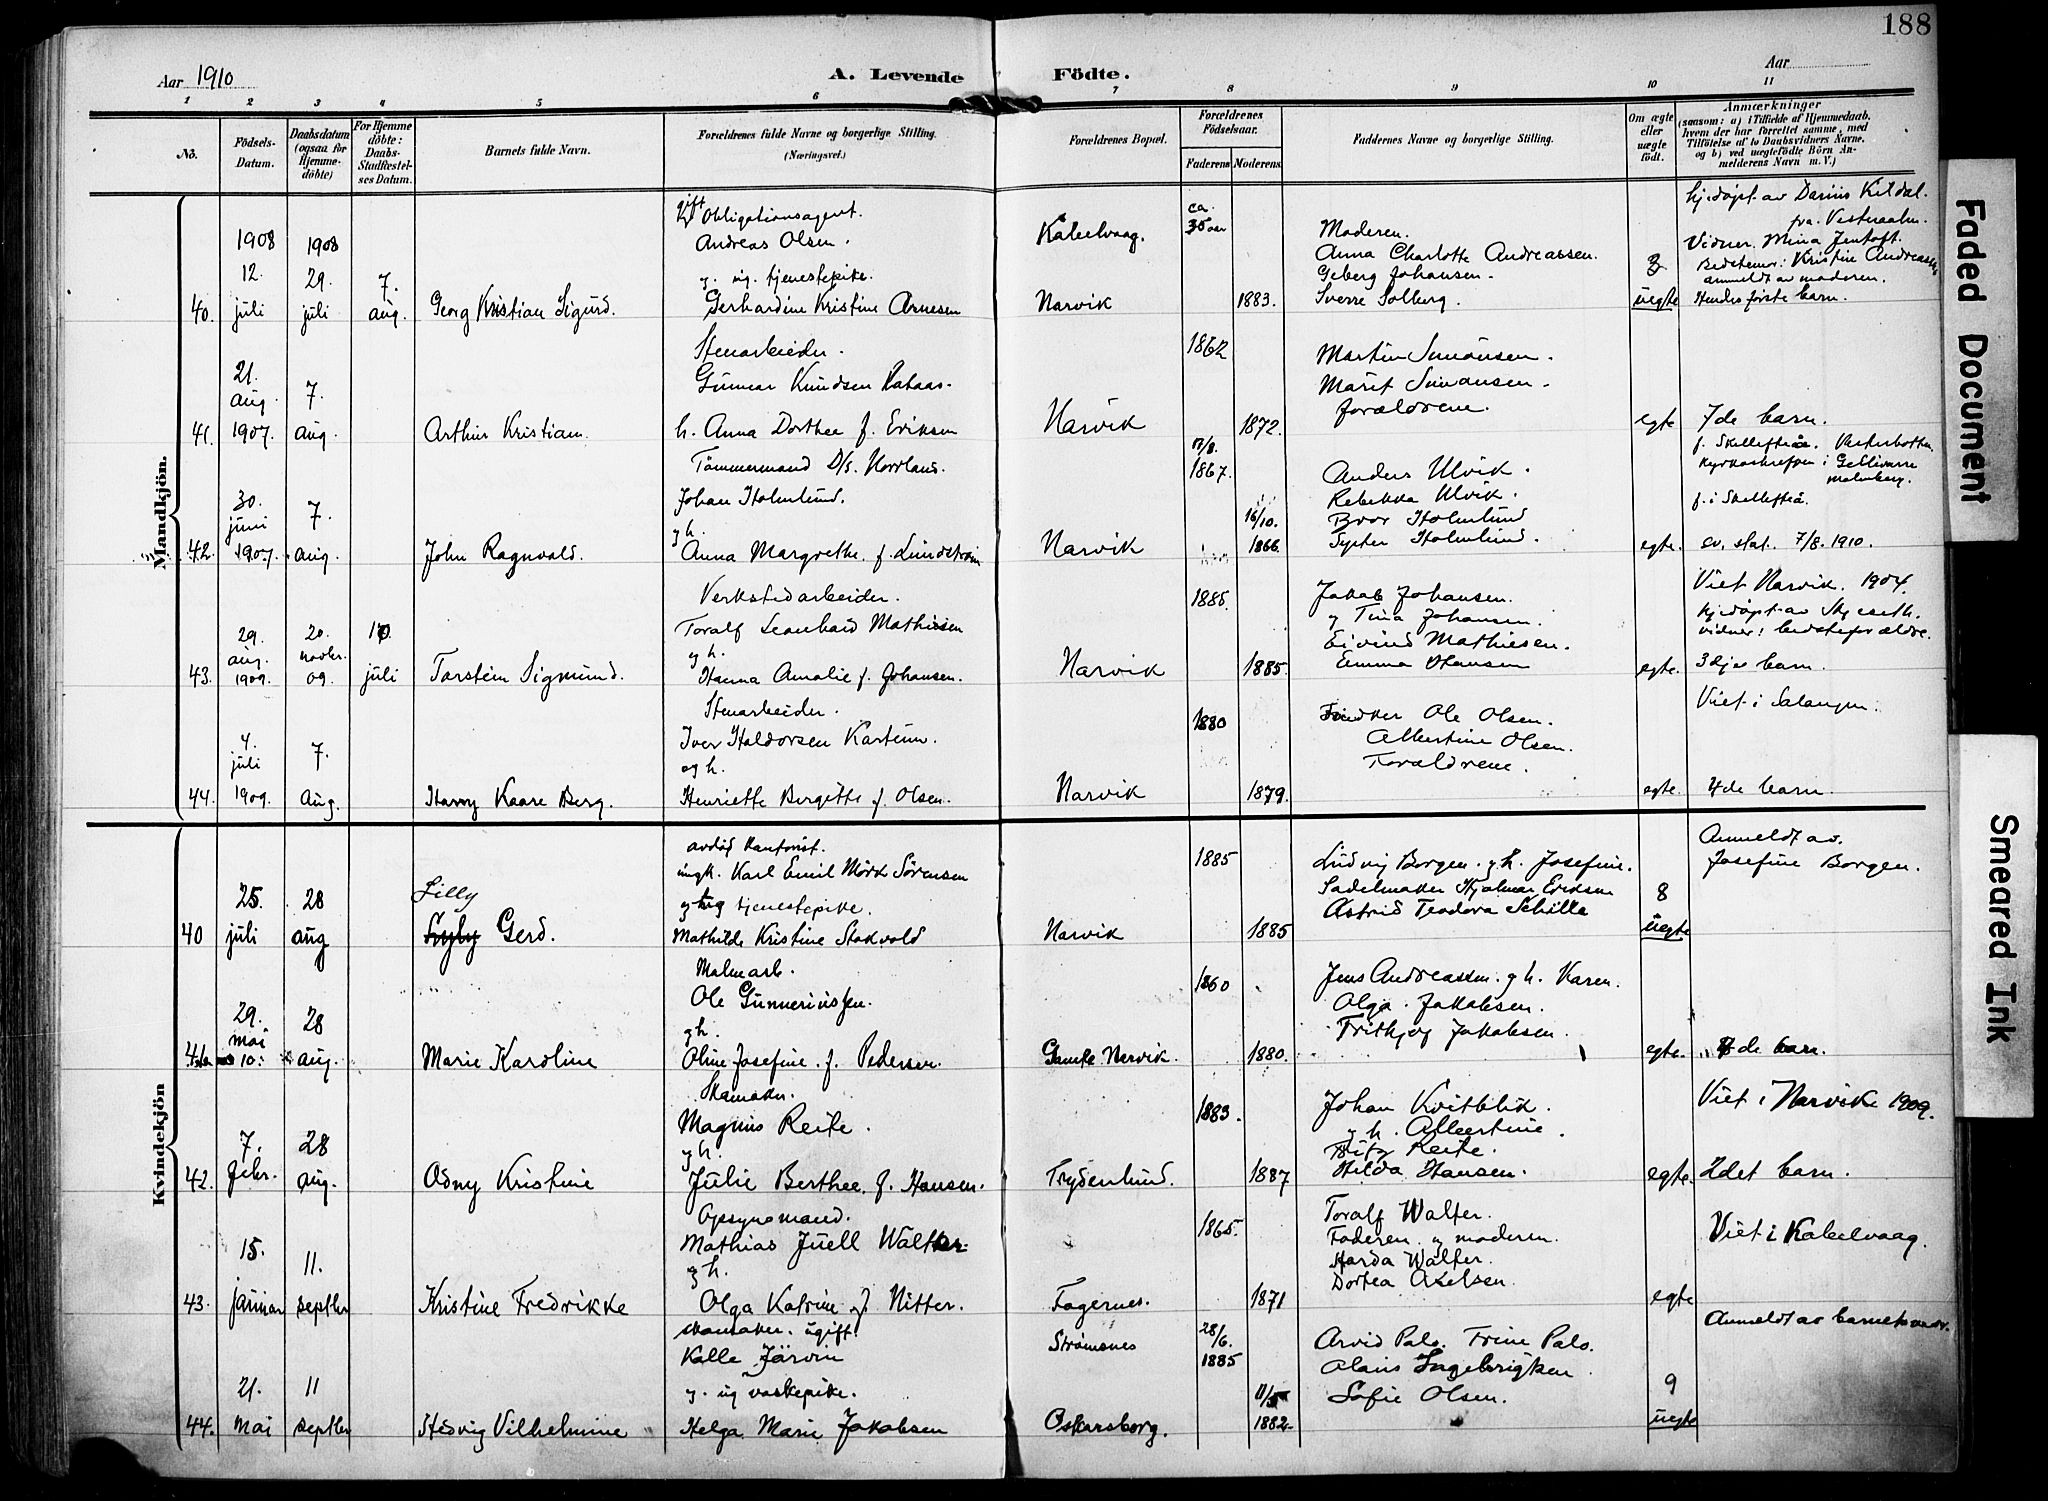 188
Aar 1910
A. Levende Födte.
Aar
1 2 3 4 5 6 7 8 9 10 11
No.
Födsels-Datum.
Daabsdatum (ogsaa for Hjemme-döbte)
For Hjemme döbte: Daabs-Stadfæstel-ses Datum.
Barnets fulde Navn.
Forældrenes fulde Navne og borgerlige Stilling.
(Næringsvei.)
Forældrenes Bopæl.
Forældrenes Födselsaar.
Faderens Moderens.
Faddernes Navne og borgerlige Stilling.
Om ægte eller uægte födt.
Anmærkninger
(saasom: a) i Tilfælde af Hjemmedaab. hvem der har forrettet samme, med Tilföielse af to Daabsvidners Navne. og b) ved uægtefödte Börn An-melderens Navn m. V.)
Mandkjön.
gift Obligationsagent.
Andreas Olsen.
Kabelvaag.
ca. 35 aar
1908 1908
12. 29. 7.
40. juli juli aug. Georg Kristian Sigurd.
y. ug. tjenestepike.
Gerhardine Kristine Arnesen
Narvik 1883.
Moderen.
Anna Charlotte Andreassen.
Geberg Johansen.
Sverre Solberg.
uegte
hj.døpt av Darius Kildal.
fra Vesteraalen.
Vidner. Mina Jentoft.
Bedstemor: Kristine Andreassen
anmeldt av moderen.
Hendes første barn.
Stenarbeider.
Gunnar Knudsen Rataas.
1862
21. aug. 7.
41. 1907. aug. Arthur Kristian.
h. Anna Dorthea f. Eriksen
Narvik 1872.
Martin Simonsen.
Marit Simonsen.
forældrene.
egte 7de barn.
Tømmermand D/s. Norrland.
Johan Holmlund.
1867.
30. juni 7.
42. 1907. aug. John Ragnvald.
y h.
Anna Margrethe f. Lundstrøm
Narvik 16/10. 1866.
Anders Ulvik.
Rebekka Ulvik.
Bror Holmlund
Syster Holmlund.
egte.
f. Skellefteå. Vesterbotten
Gellivare
Malmberg.
f. i Skellefteå.
sv. stat. 7/8. 1910.
Verkstedarbeider.
Toralf Leonhard Mathisen
1885.
29. aug. 20. novbr. 10.
43. 1909. 09. juli Torstein Sigmund.
y h.
Hanna Amalie f. Johansen.
Narvik 1885.
Jakob Johansen.
y Tina Johansen.
Eivind Mathiesen.
Emma Hansen
egte.
Viet Narvik. 1904.
hj.døpt av Skjeseth.
vidner: bedsteforældre.
3dje barn.
Stenarbeider.
Iver Haldorsen Kartum.
1880
4. juli 7.
44. 1909. aug. Harry Kaare Berg.
og h.
Henriette Bergitte f. Olsen.
Narvik 1879.
Ole Olsen.
Albertine Olsen.
Forældrene.
egte.
Viet i Salangen.
4de barn.
Kvindekjön
avdød kantorist.
ungk. Karl Emil Mørk Sørensen
1885
25. 28
Lilly
40 juli aug Gerd.
y ug tjenestepike.
Mathilde Kristine Stokvold
Narvik 1885
Ludvig Borgen. y h. Josefine.
Sadelmaker Hjalmar Eriksen
Astrid Teodora Schille
8
uegte
Anmeldt av.
Josefine Borgen.
Malmarb.
Ole Gunneriussen.
1860
29. mai 28
41. 10. aug. Marie Karoline
y h.
Oline Josefine. f. Pedersen.
Gamle Narvik. 1880.
Jens Andreassen. y h. Karen.
Olga Jakobsen.
Fritjof Jakobsen.
egte. de barn.
Skomaker.
Magnus Reite.
1883.
7. 28
42. febr. aug. Odny Kristine
y h.
Julie Berthea f. Hansen.
Frydenlund. 1887
Johan Kvitblik.
y h. Albertine.
Fritz Reite.
Hilda Hansen.
egte.
Viet i Narvik 1909.
2det barn.
Opsynsmand.
Mathias Juell Walter.
1865.
15. 11.
43. januar septbr Kristine Fredrikke
y h.
Olga Katrine f. Nitter.
Fagernes. 1871
Toralf Walter.
Faderen. y moderen.
Harda Walter.
Dortea Axelsen.
egte
Viet i Kabelvaag.
skomaker. ugift.
Kalle Järvin
Strømsnes
28/6. 1885
21. 11
44. mai septbr Hedvig Vilhelmine
y. ug vaskepike.
Helga Marie Jakobsen
Oskarsborg. 11/5 1882
Arvid Palo. Trine Palo.
Ingebrigtsen
Sofie Olsen.
9
uegte
Anmeldt av barnets mor.
Faded Document
Smeared Ink